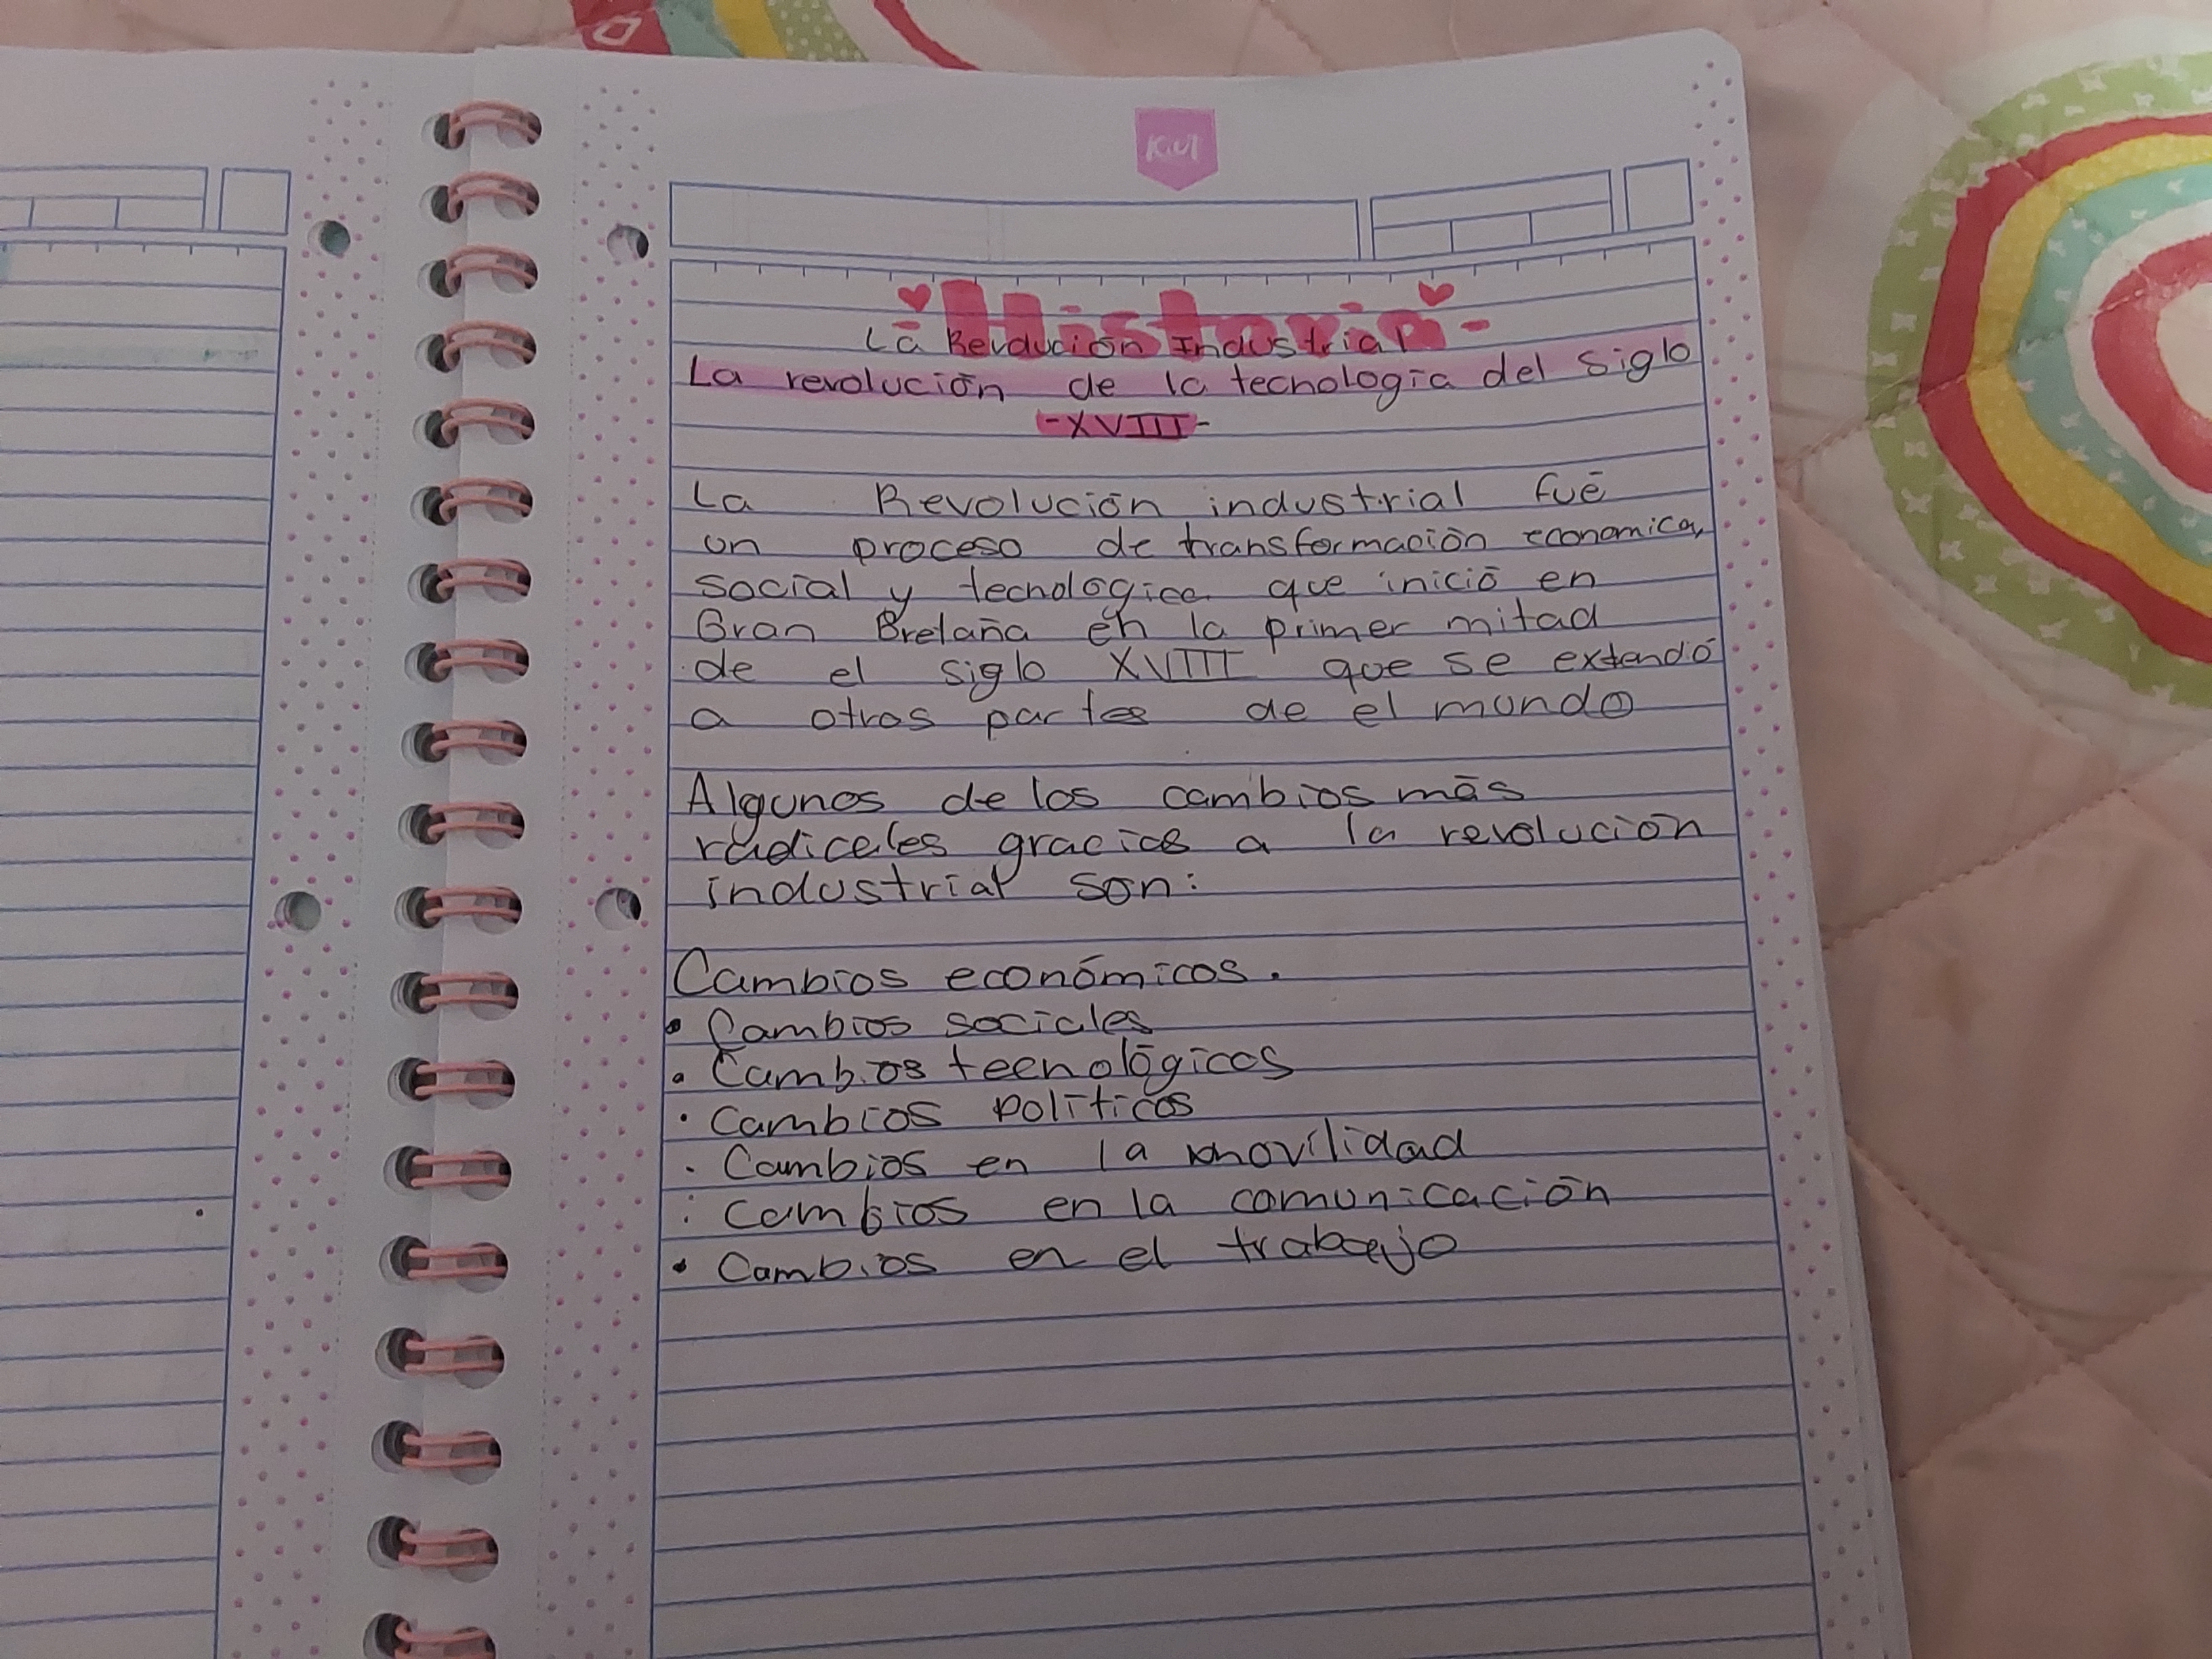 Kiut
-Historia-
La Revolución Industrial
La revolución de la tecnología del siglo
-XVIII-
La Revolución industrial fué
un proceso de transformación economica,
social y tecnologica que inició en
Gran Bretaña en la primer mitad
de el siglo XVIII que se extendó
a otros partes de el mundo
Algunos de los cambios más
radicales gracias a la revolución
industrial son:
Cambios económicos.
• Cambios sociales
• Cambios tecnológicos
• Cambios políticos
• Cambios en la movilidad
: Cambios en la comunicación
• Cambios en el trabajo